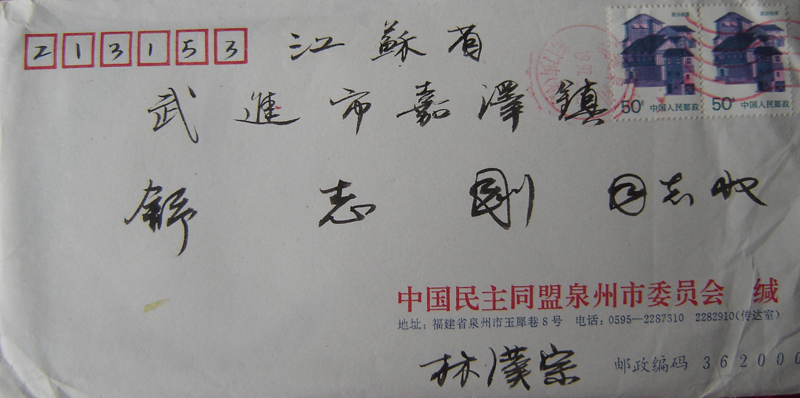 213153 江蘇省
武進市嘉澤鎮
舒志剛同志收
50分 中国人民邮政 50分 中国人民邮政
中国民主同盟泉州市委员会 缄
地址：福建省泉州市玉犀巷8号 电话：0595—2287310 2282910(传达室)
林漢宗 邮政编码 362000